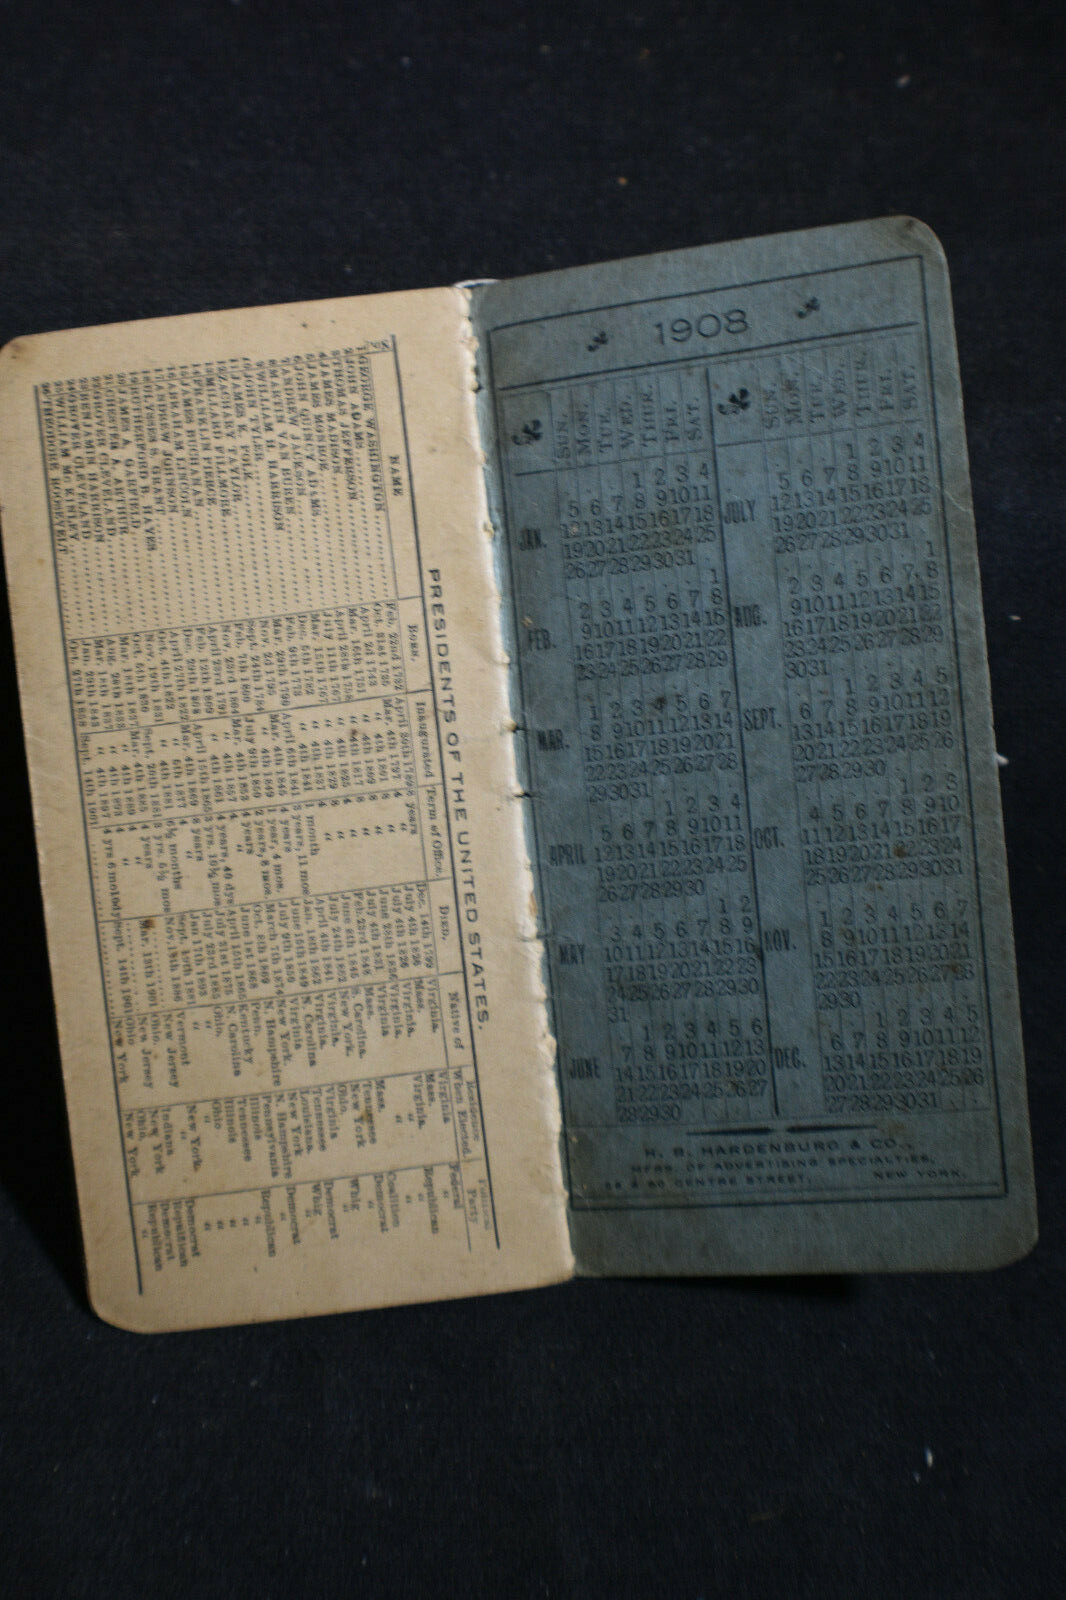 PRESIDENTS OF THE UNITED STATES.
No. NAME Born, Inaugurated Term of Office, DIED, Native of Residence When Elected. Political Party
1 GEORGE WASHINGTON Feb. 22nd 1732 April 30th 1789 8 years Dec. 14th 1799 Virginia. Virginia Federal
2 JOHN ADAMS Mar. 4th 1797 4 " July 4th 1826 Mass. Mass. "
3 THOMAS JEFFERSON April 2d 1743 " 4th 1801 8 " July 4th 1826 Virginia. Virginia. Republican
4 JAMES MADISON Mar. 16th 1751 " 4th 1809 8 " June 28th 1836 Virginia. " "
5 JAMES MONROE April 28th 1758 " 4th 1817 8 " July 4th 1831 Virginia "
6 JOHN QUINCY ADAMS July 11th 1767 " 4th 1825 4 " Feb. 23rd 1848 Mass. Mass. Coalition
7 ANDREW JACKSON Mar. 15th 1767 " 4th 1829 8 " June 8th 1845 S. Carolina. Tennessee Democrat
8 MARTIN VAN BUREN Dec. 5th 1782 " 4th 1837 4 " July 24th 1862 New York. New York "
9 WILLIAM H. HARRISON Feb. 9th 1773 " 4th 1841 1 month April 4th 1841 Virginia. Ohio. Whig
10 JOHN TYLER Mar. 29th 1790 April 6th 1841 3 years, 11 mos Jan. 18th 1862 Virginia. Virginia
11 JAMES K. POLK Nov. 2d 1795 Mar. 4th 1845 4 years June 15th 1849 N. Carolina Tennessee Democrat
12 ZACHARY TAYLOR Sept. 24th 1784 " 4th 1849 1 year, 4 mos. July 9th 1850 Virginia Louisiana. Whig
13 MILLARD FILMORE July 9th 1850 2 years, 8 mos March 7th 1874 New York. New York
14 FRANKLIN PIERCE Nov. 23d 1804 Mar. 4th 1853 4 years Oct. 8th 1869 N. Hampshire N. Hampshire Democrat
15 JAMES BUCHANAN April 23rd 1791 " 4th 1857 4 " June 1st 1868 Penn. Pennsylvania "
16 ABRAHAM LINCOLN Feb. 12th 1809 " 4th 1861 4 years, 40 dys April 15th 1865 Kentucky Illinois Republican
17 ANDREW JOHNSON April 15th 1865 3 years, 10½ mos July 31st 1875 N. Carolina Tennessee
18 ULYSSES S. GRANT April 27th 1822 Mar. 4th 1869 8 years July 23rd 1885 Ohio, Illinois "
19 RUTHERFORD B. HAYES Oct. 4th 1822 4 " Jan. 17th 1893 " Ohio "
20 JAMES A. GARFIELD Nov. 19th 1831 " 4th 1881 6½ months Sept. 19th 1881 " " "
21 CHESTER A. ARTHUR Oct. 5th 1830 Sept. 20th 1881 3 yrs, 5½ mos Nov. 18th 1886 Vermont New York. "
22 GROVER CLEVELAND Mar. 18th 1837 Mar. 4th 1885 4 years New Jersey Democrat
23 BENJAMIN HARRISON " 4th 1889 4 " Mar. 13th 1901 Ohio. Indiana Republican
24 GROVER CLEVELAND Mar. 18th 1837 " 4th 1893 4 " New Jersey New York Democrat
25 WILLIAM Mc KINLEY Jan. 29th 1843 " 4th 1897 4 yrs 6 mo 10dy Sept. 14th 1901 Ohio Ohio. Republican
26 THEODORE ROOSEVELT Oct. 27th 1858 Sept. 14th 1901 New York New York "
1908
SUN. MON. TUE. WED. THUR. FRI. SAT.
JAN.
1 2 3 4
5 6 7 8 9 10 11
12 13 14 15 16 17 18
19 20 21 22 23 24 25
26 27 28 29 30 31
FEB.
1
2 3 4 5 6 7 8
9 10 11 12 13 14 15
16 17 18 19 20 21 22
23 24 25 26 27 28 29
MAR.
1 2 3 4 5 6 7
8 9 10 11 12 13 14
15 16 17 18 19 20 21
22 23 24 25 26 27 28
29 30 31
APRIL
1 2 3 4
5 6 7 8 9 10 11
12 13 14 15 16 17 18
19 20 21 22 23 24 25
26 27 28 29 30
MAY
1 2
3 4 5 6 7 8 9
10 11 12 13 14 15 16
17 18 19 20 21 22 23
24 25 26 27 28 29 30
31
JUNE
1 2 3 4 5 6
7 8 9 10 11 12 13
14 15 16 17 18 19 20
21 22 23 24 25 26 27
28 29 30
SUN. MON. TUE. WED. THUR. FRI. SAT.
JULY
1 2 3 4
5 6 7 8 9 10 11
12 13 14 15 16 17 18
19 20 21 22 23 24 25
26 27 28 29 30 31
AUG.
1
2 3 4 5 6 7 8
9 10 11 12 13 14 15
16 17 18 19 20 21 22
23 24 25 26 27 28 29
30 31
SEPT.
1 2 3 4 5
6 7 8 9 10 11 12
13 14 15 16 17 18 19
20 21 22 23 24 25 26
27 28 29 30
OCT.
1 2 3
4 5 6 7 8 9 10
11 12 13 14 15 16 17
18 19 20 21 22 23 24
25 26 27 28 29 30 31
NOV.
1 2 3 4 5 6 7
8 9 10 11 12 13 14
15 16 17 18 19 20 21
22 23 24 25 26 27 28
29 30
DEC.
1 2 3 4 5
6 7 8 9 10 11 12
13 14 15 16 17 18 19
20 21 22 23 24 25 26
27 28 29 30 31
H. B. HARDENBURG & CO.,
MFRS. OF ADVERTISING SPECIALTIES,
CENTRE STREET, NEW YORK.